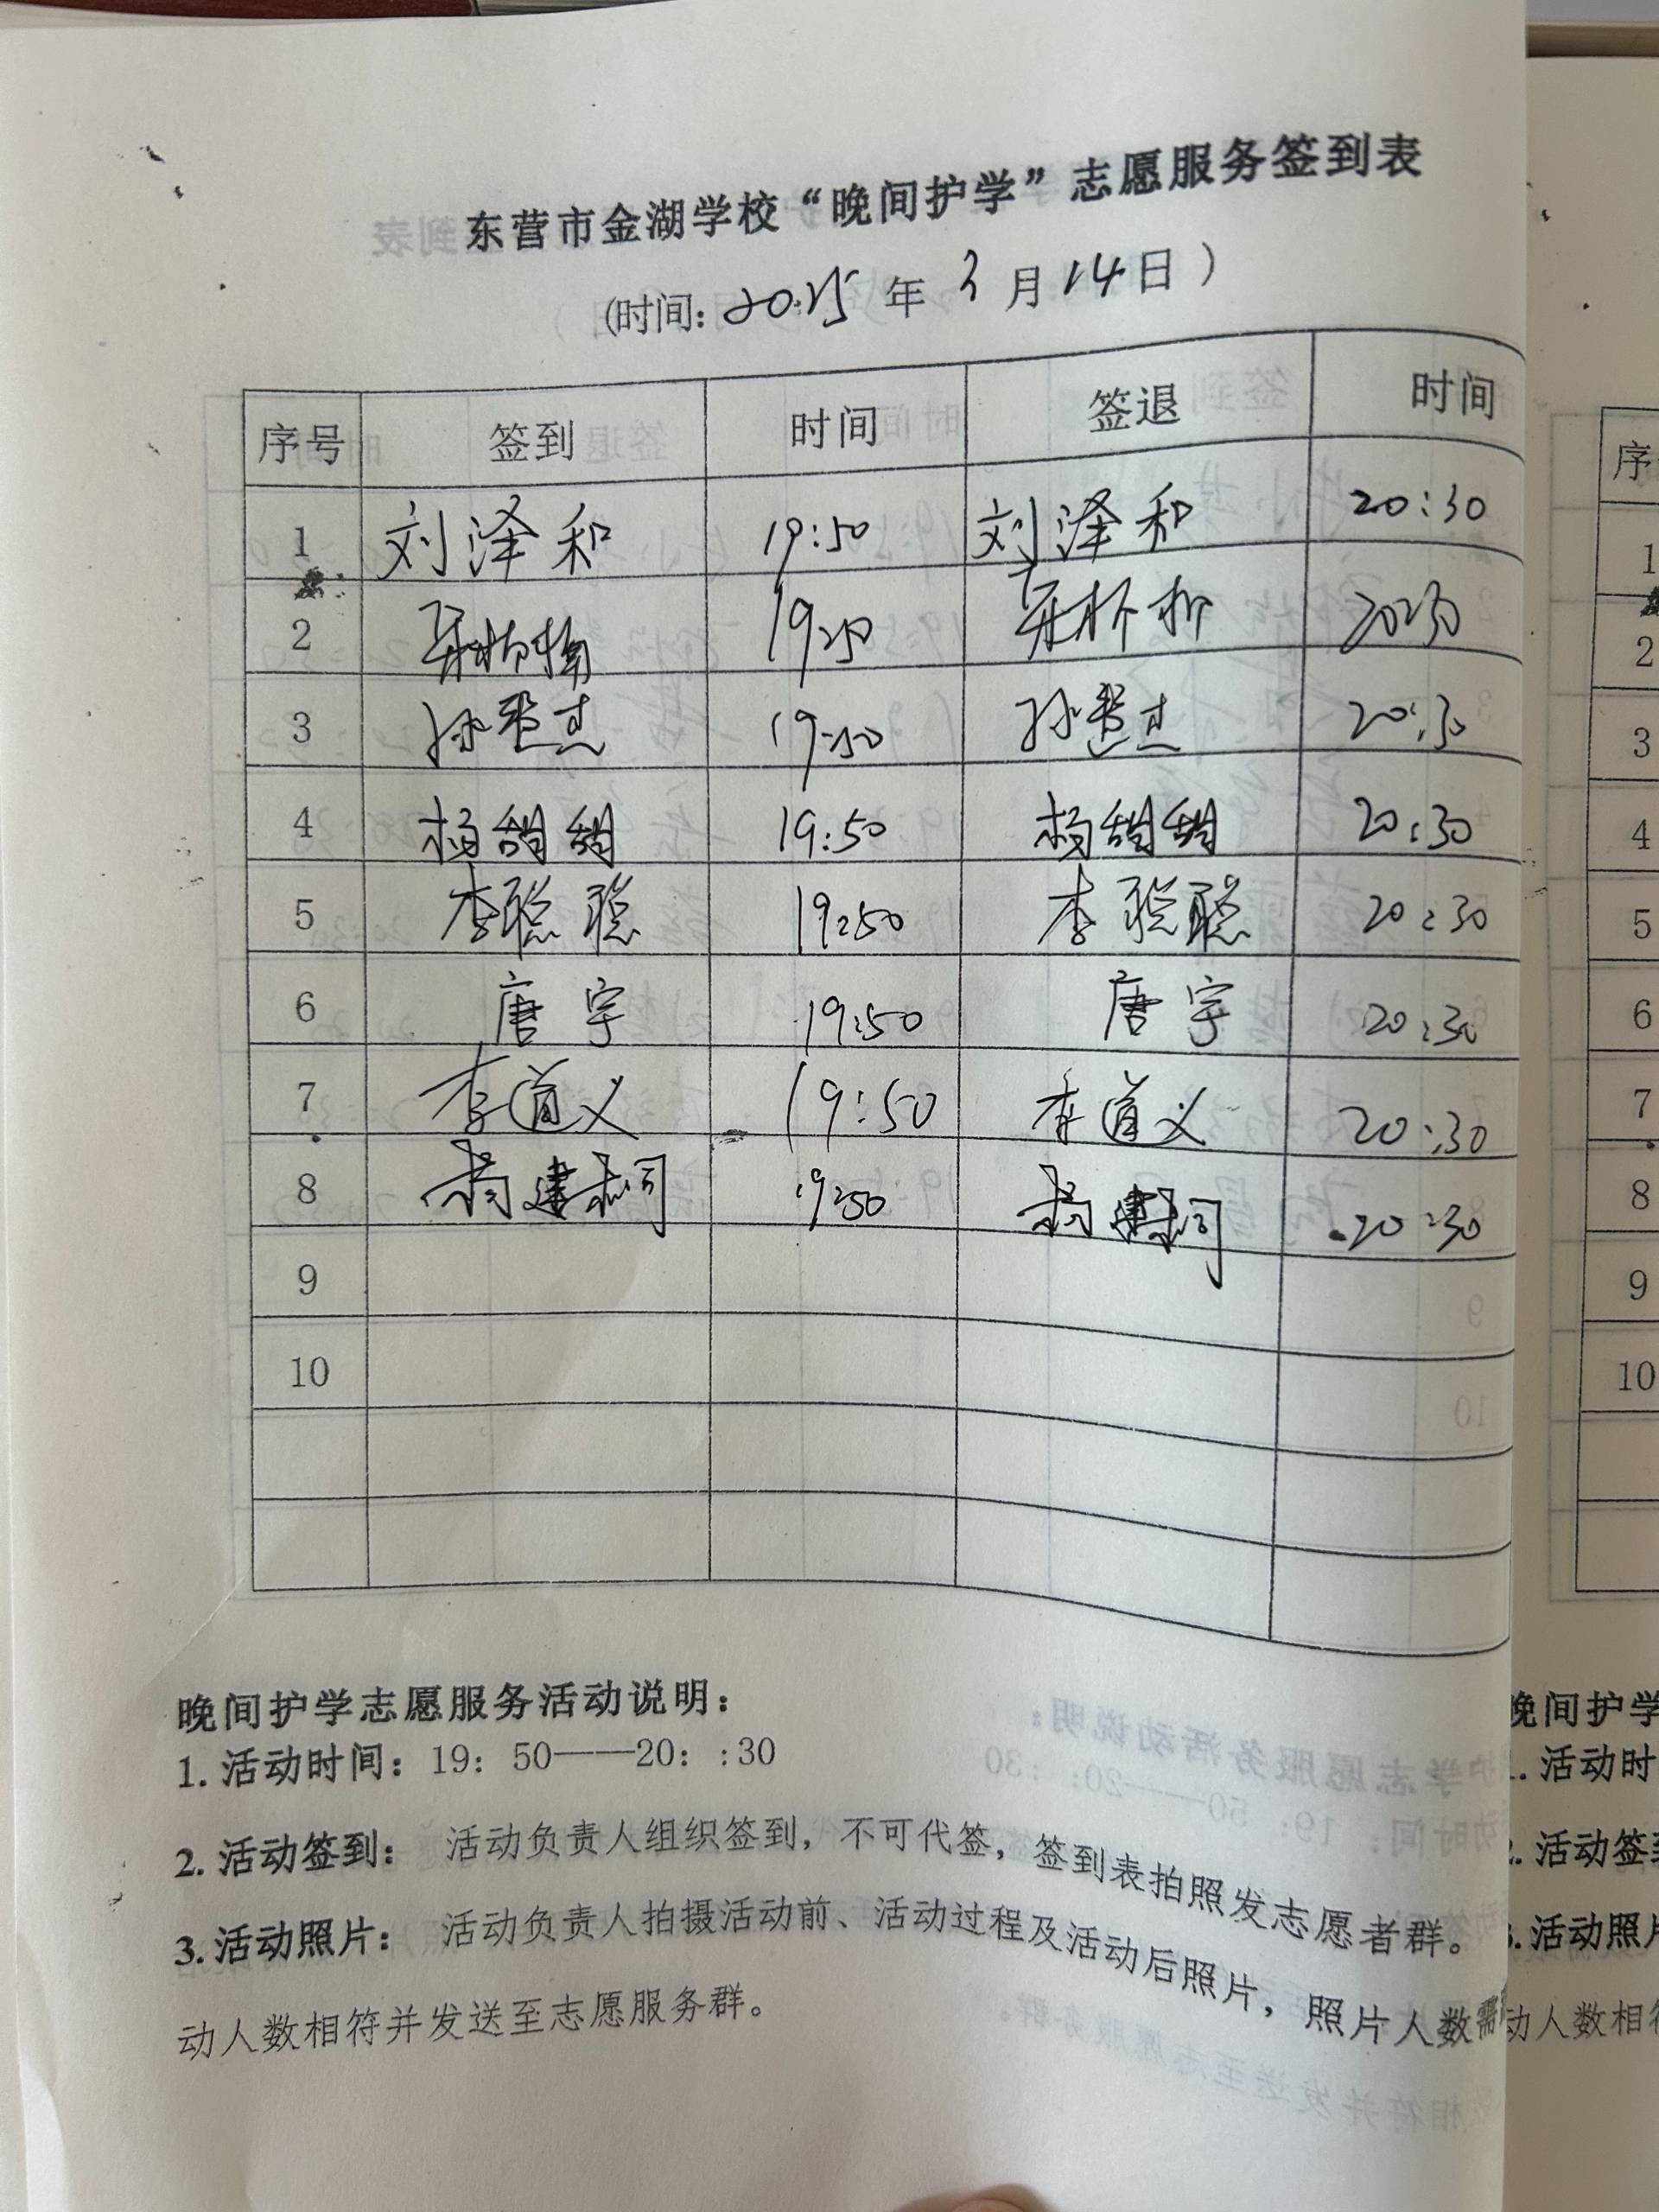 东营市金湖学校“晚间护学”志愿服务签到表
(时间: 2025 年 3 月 14 日 )
序号 签到 时间 签退 时间
1 刘泽和 19:50 刘泽和 20:30
2 19:50 20:30
3 孙 杰 19:50 孙 杰 20:30
4 杨甜甜 19:50 杨甜甜 20:30
5 李聪聪 19:50 李聪聪 20:30
6 唐宇 19:50 唐宇 20:30
7 李道义 19:50 李道义 20:30
8 杨建 19:50 杨建 20:30
9
10
晚间护学志愿服务活动说明:
1. 活动时间: 19: 50——20: :30
2. 活动签到: 活动负责人组织签到, 不可代签, 签到表拍照发志愿者群。
3. 活动照片: 活动负责人拍摄活动前、活动过程及活动后照片, 照片人数需
动人数相符并发送至志愿服务群。
序
1
2
3
4
5
6
7
8
9
10
晚间护学
. 活动时
. 活动签到
. 活动照片
动人数相符